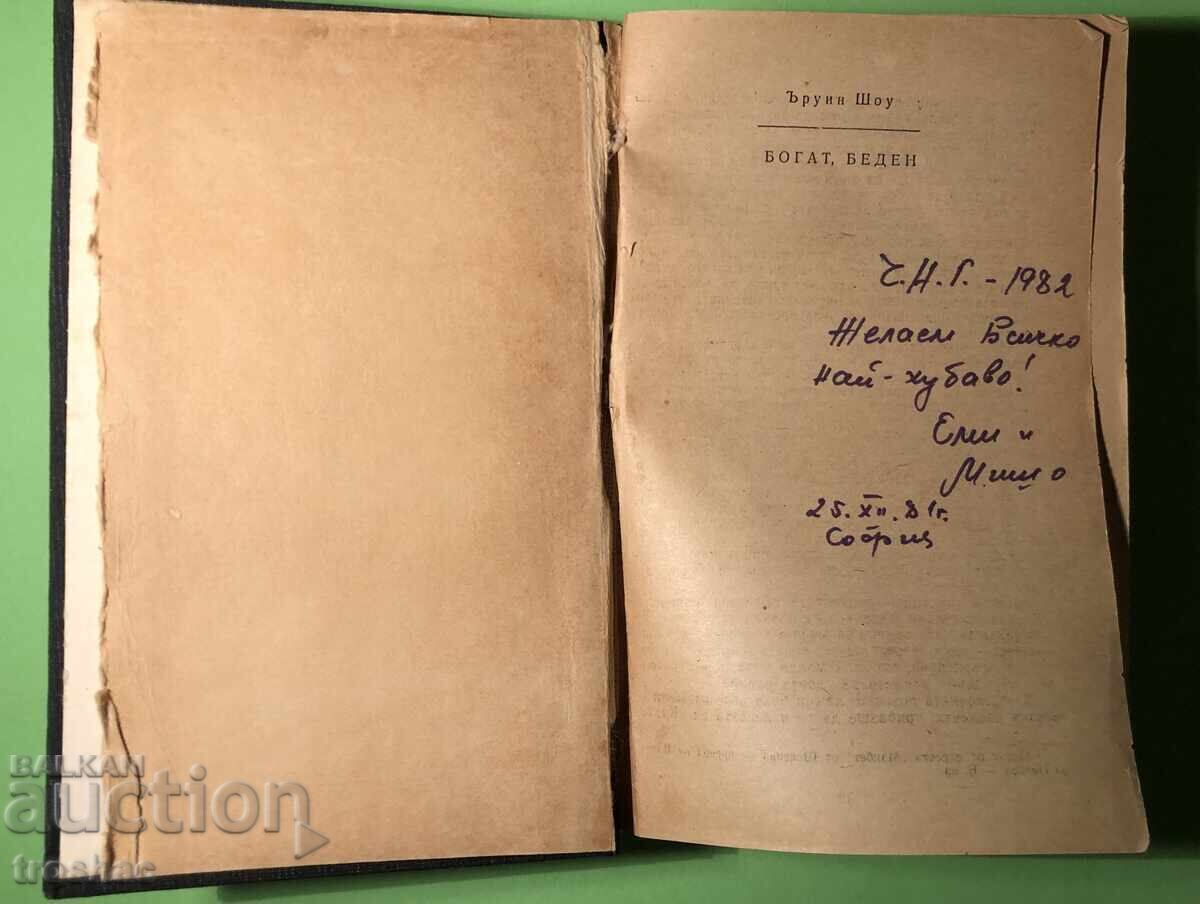 Ъруин Шоу
БОГАТ, БЕДЕН
Ч.Н.Г. - 1982
Желаем всичко
най-хубаво!
Еми и
Мишо
25.XII.81г.
София
BALKAN
auction
troshac